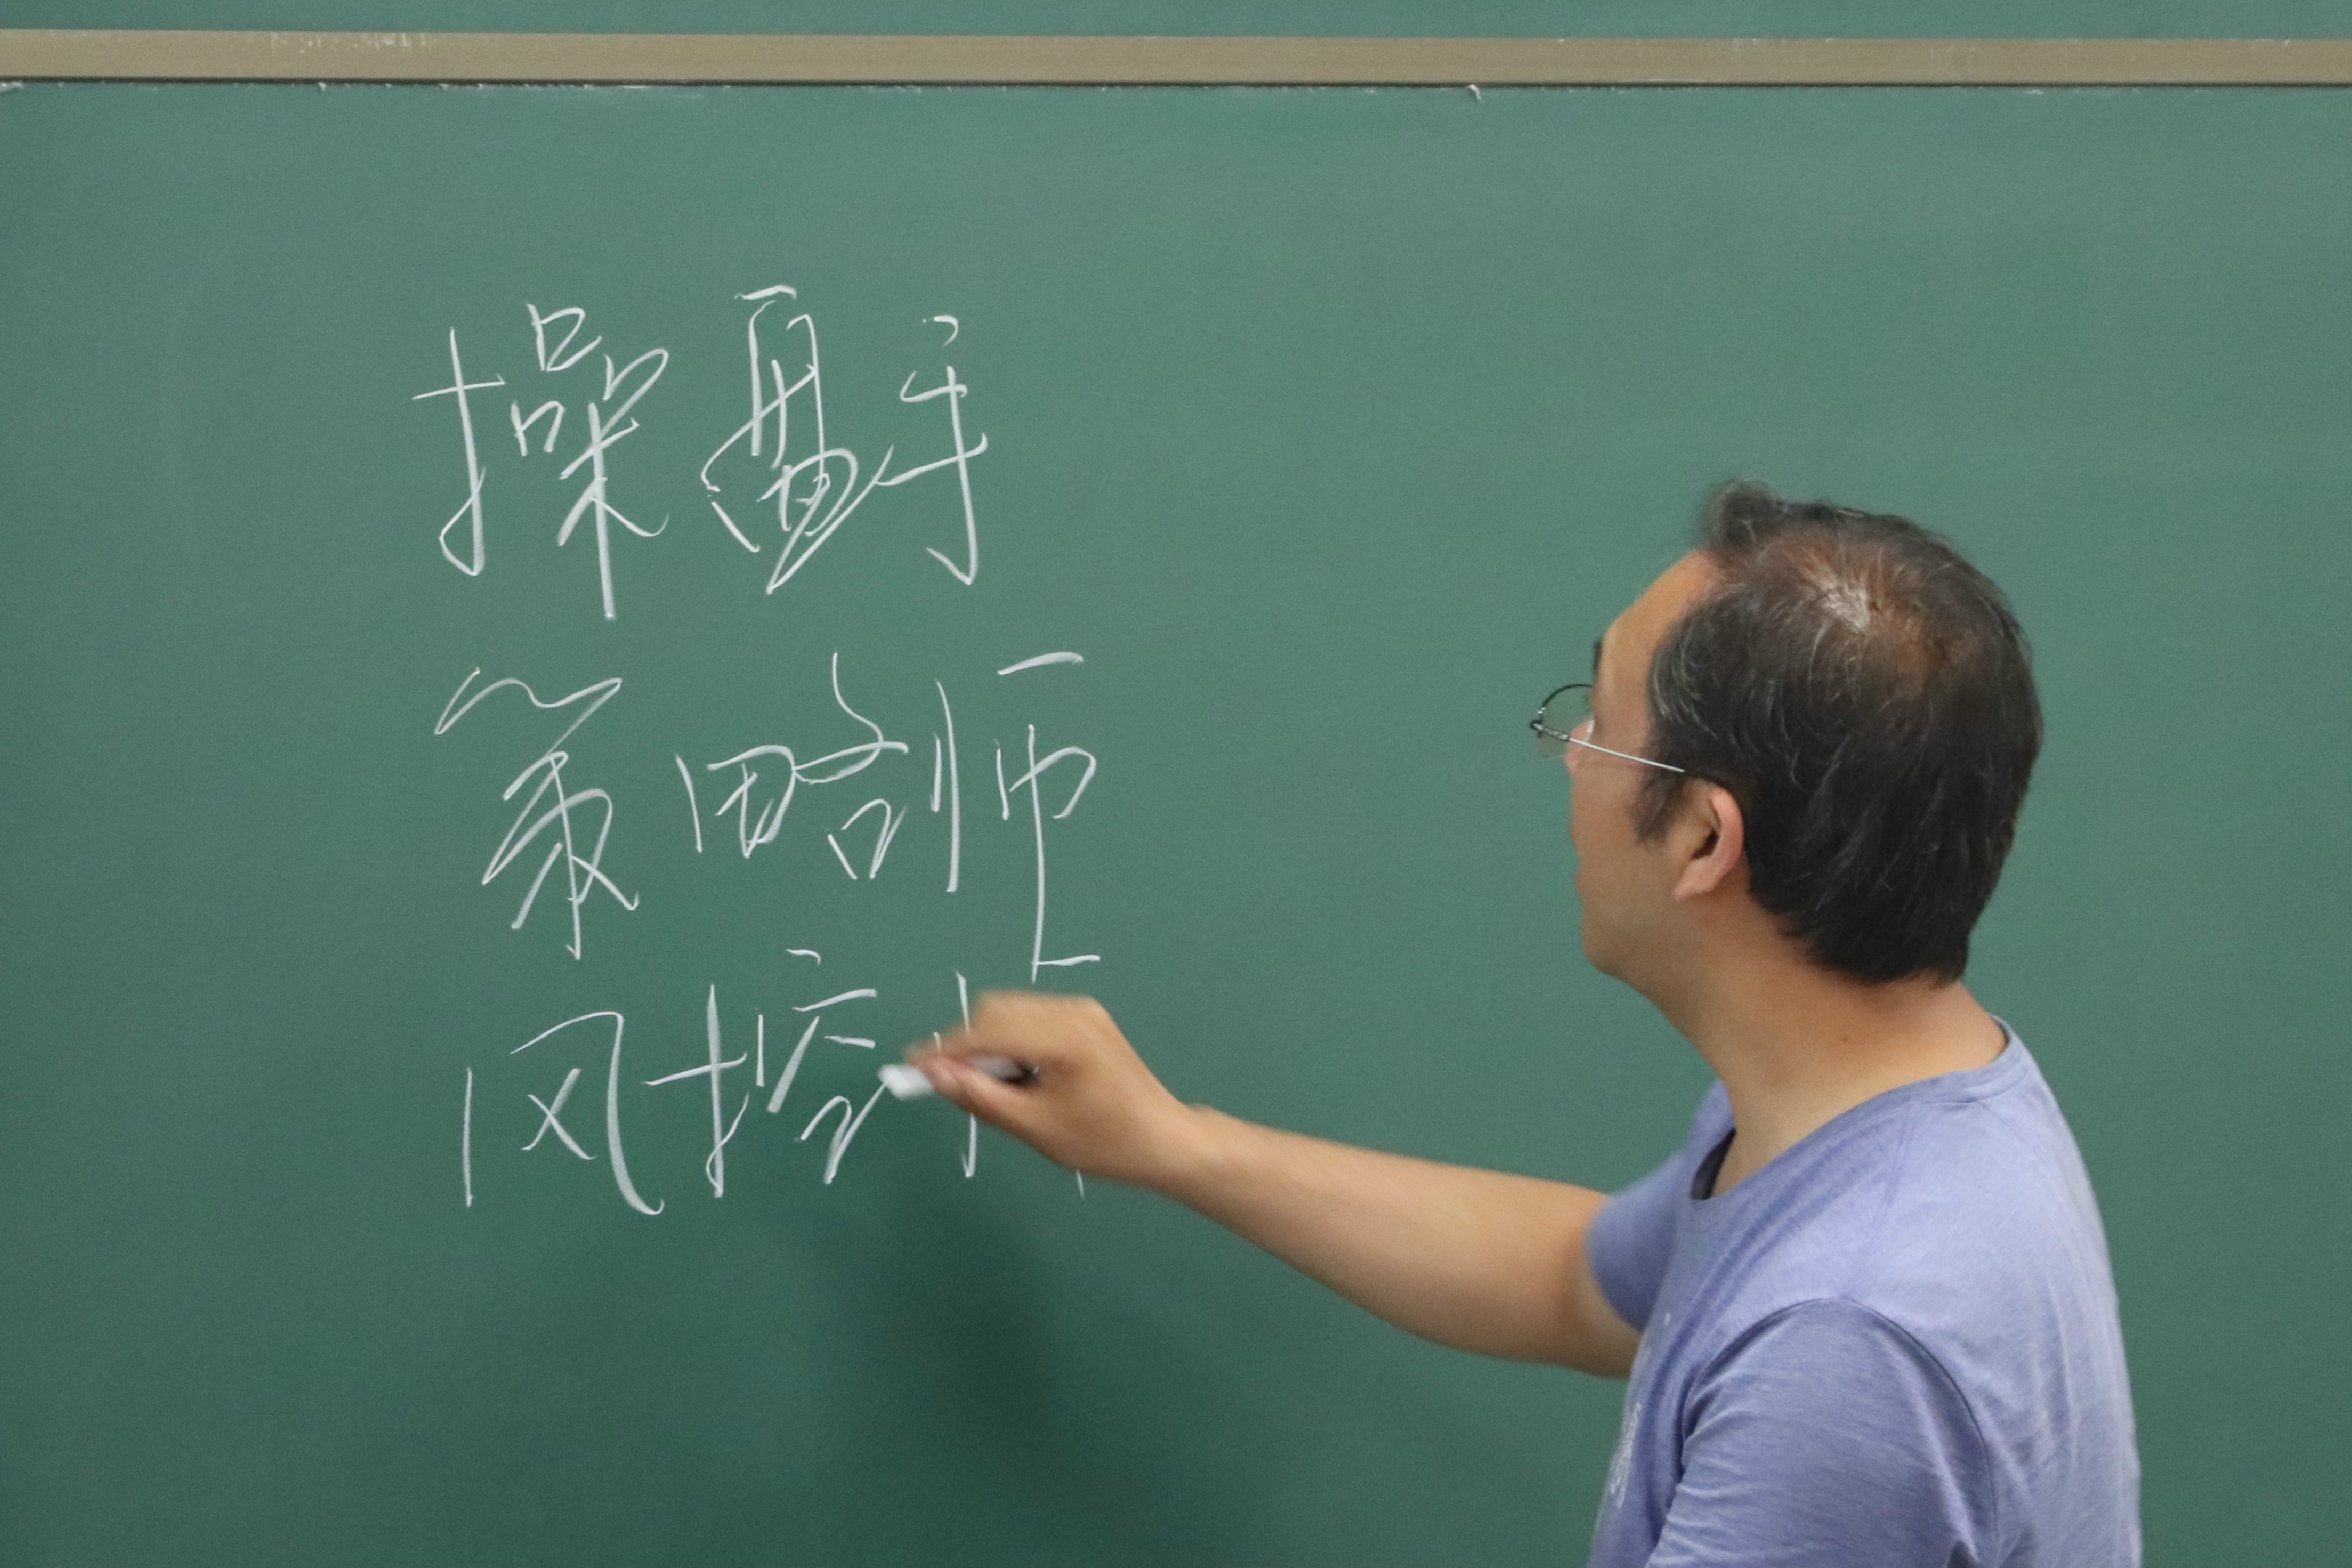 操盘手
策略师
风控